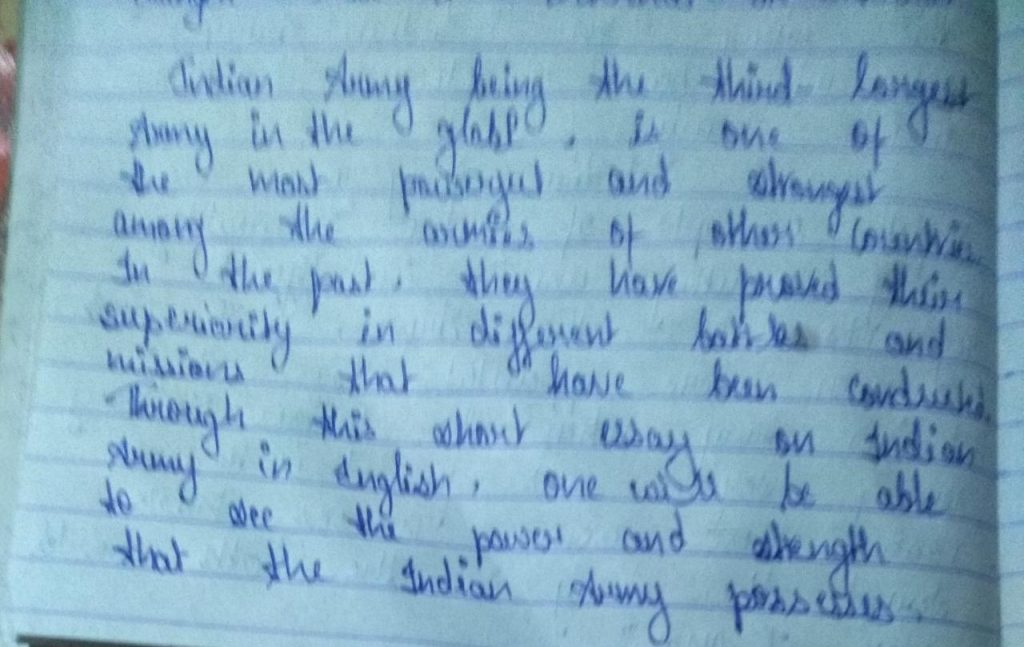 Indian Army being the third largest
Army in the globe, is one of
the most powerful and strongest
among the armies of other countries.
In the past, they have proved their
superiority in different battles and
missions that have been conducted.
Through this short essay on Indian
Army in English, one will be able
to see the power and strength
that the Indian Army possesses.